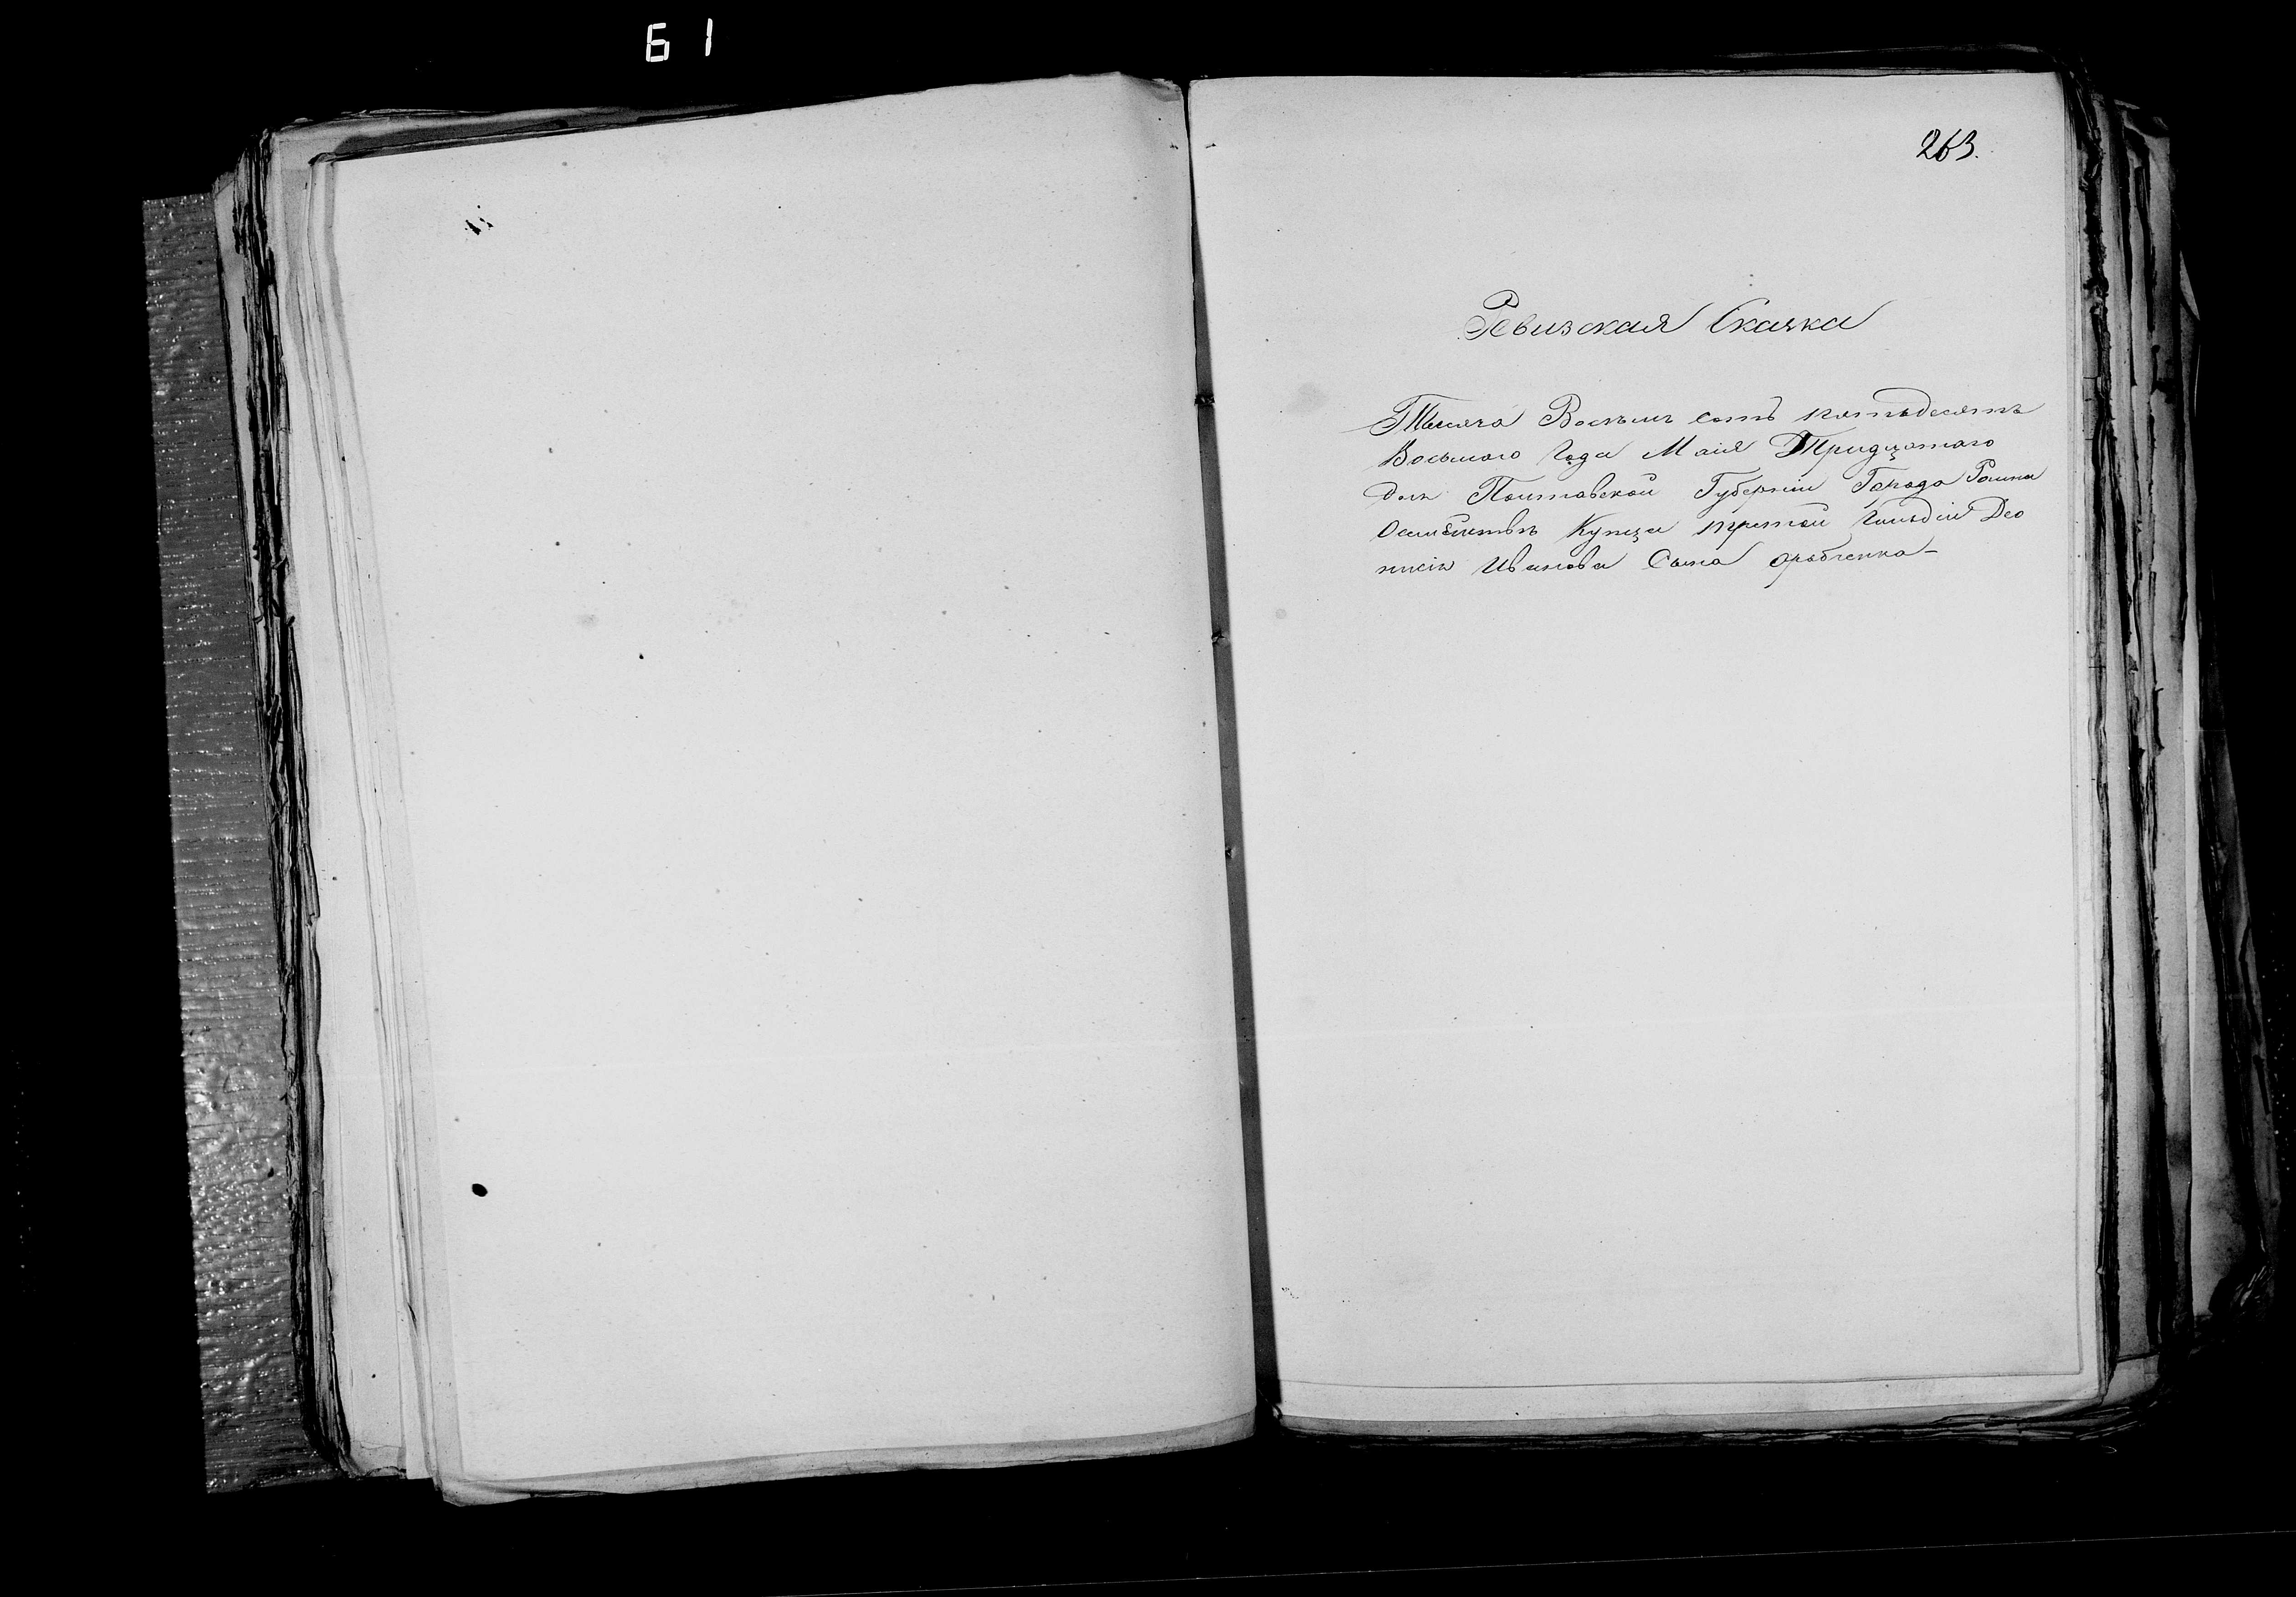 61
263.
Ревизская Скаска
Тысяча Восѣмъ сотъ пятьдесятъ
Восьмого Года Маія Тридцатого
дня Полтавской Губерніи Города Ромна
О семействѣ Купца третой Гильдіи Део
нисія Иванова Сына